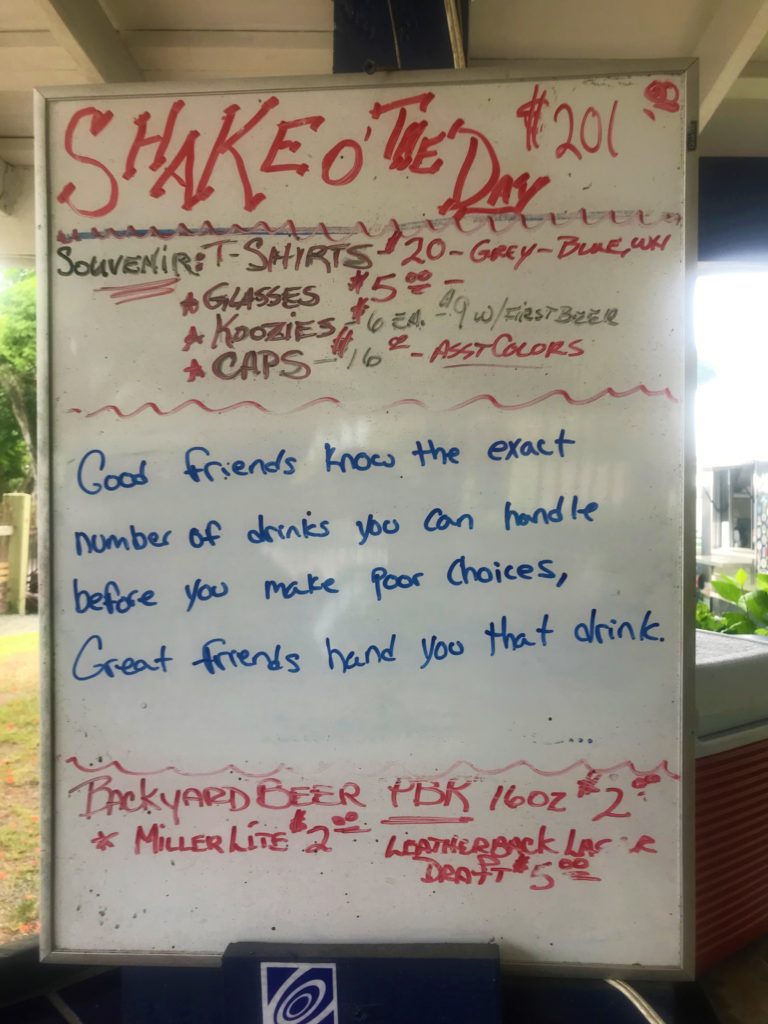 SHAKE O' THE DAY $201.00
SOUVENIR: T-SHIRTS - $20 - GREY - BLUE, WH
* GLASSES $5.00 -
* KOOZIES - $6 EA. - $9 W/FIRST BEER
* CAPS - $16 - ASST COLORS
Good friends know the exact
number of drinks you can handle
before you make poor choices,
Great friends hand you that drink.
...
BACKYARD BEER PBR 16OZ $2.00
* MILLER LITE $2.00 LEATHERBACK
DRAFT $5.00